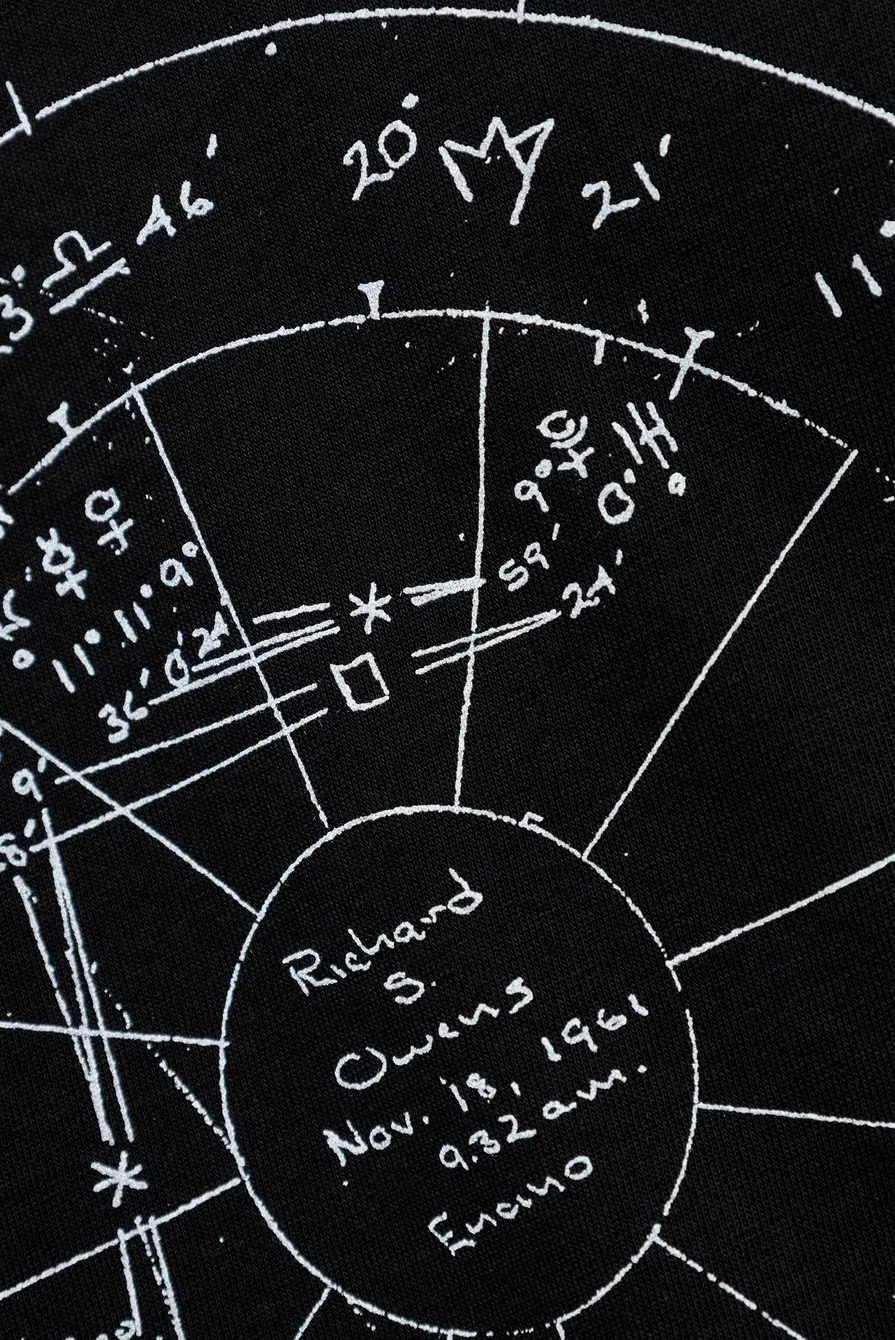 20° ♍ 21'
♎ 46'
11°
9° ☿
0° ♓
59'
24'
♀
11° 11° 9°
36' 0' 24'
9'
8'
Richard
S.
Owens
Nov. 18, 1961
9.32 a.m.
Encino